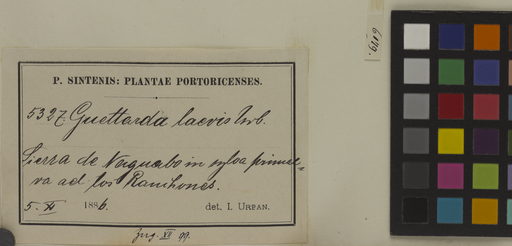 P. SINTENIS: PLANTAE PORTORICENSES.
5327. Guettarda laevis Urb.
Sierra de Naguabo in sylva primae-
va ad los Ranchones.
5. XI 1886. det. I. URBAN.